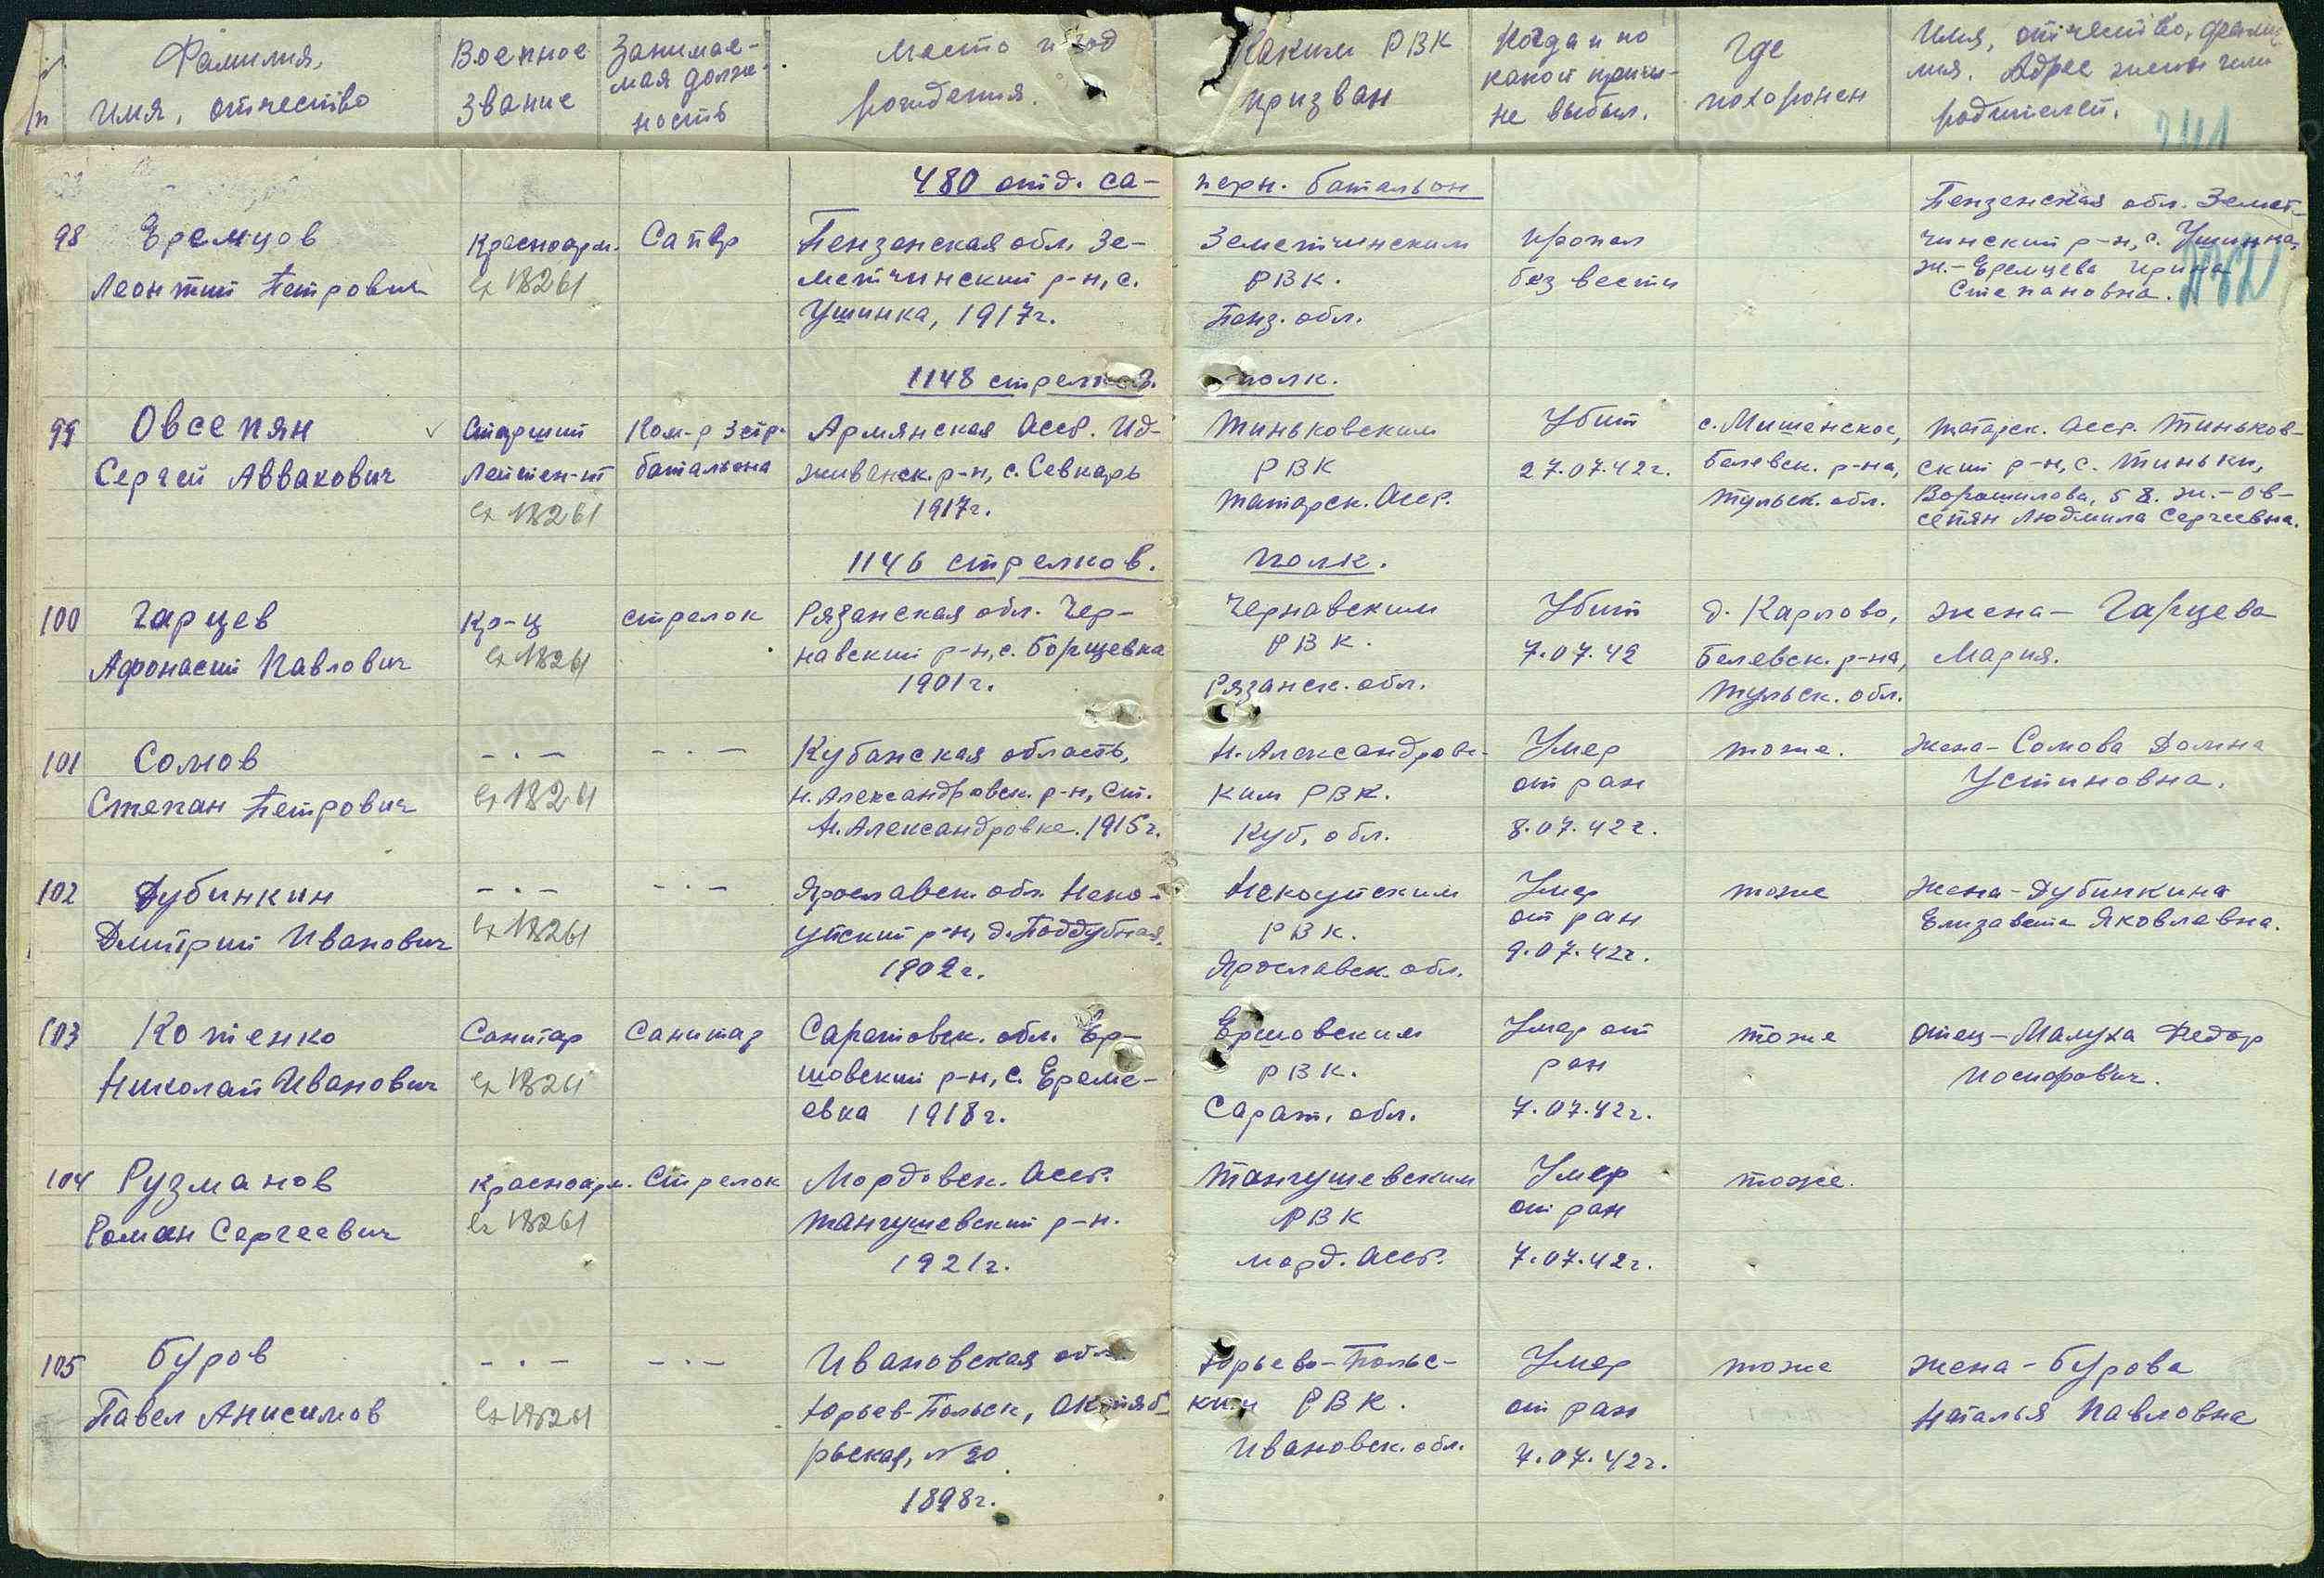 п
Фамилия,
имя, отчество
Военное
звание
Занимае-
мая долж-
ность
Место и год
рождения.
Каким РВК
призван
Когда и по
какой причи-
не выбыл.
Где
похоронен
Имя, отчество, фами-
лия. Адрес жены или
родителей.
241
480 отд. са-
перн. батальон
98
Еремцов
Леонтий Петрович
Красноарм.
18261
Сапер
Пензенская обл. Зе-
метчинский р-н, с.
Ушинка, 1917г.
Земетчинским
РВК.
Пенз. обл.
пропал
без вести
Пензенская обл.Земет-
чинский р-н, с. Ушинка,
ж.- Еремцева Ирина
Степановна.
1148 стрелков.
полк.
99
Овсепян
Сергей Аввакович
Старший
Лейтен-нт
18261
Ком-р 3 стр.
батальона
Армянская Асср. Ид-
живанск. р-н, с. Севкарь
1917г.
Тиньковским
РВК
Татарск. Асср.
Убит
27.07.42г.
с. Мишенское,
Белевск. р-на,
Тульск. обл.
Татарск. Асср. Тиньков-
ский р-н, с. Тиньки,
Ворошилова, 58. ж.- Ов-
сепян Людмила Сергеевна.
1146 стрелков.
полк.
100
Гарцев
Афонасий Павлович
Кр-ц
18261
стрелок
Рязанская обл. Чер-
навский р-н, с. Борщевка
1901г.
Чернавским
РВК.
Рязанск. обл.
Убит
7.07.42
д. Карлово,
Белевск. р-на,
Тульск. обл.
жена - Гарцева
Мария.
101
Сомов
Степан Петрович
- . -
- . -
Кубанская область,
Н. Александровск. р-н, ст.
Н. Александровка. 1915г.
Н. Александровс-
ким РВК.
Куб. обл.
Умер
от ран
8.07.42г.
тоже.
Жена - Сомова Домна
Устиновна.
102
Дубинкин
Дмитрий Иванович
- . -
18261
- . -
Ярославск. обл. Неко-
узский р-н, д. Поддубная,
1902г.
Некоузским
РВК.
Ярославск. обл.
Умер
от ран
9.07.42г.
тоже
Жена - Дубинкина
Елизавета Яковлавна.
103
Котенко
Николай Иванович
Санитар
18261
Санитар
Саратовск. обл. Ер-
шовский р-н, с. Ереме-
евка 1918г.
Ершовским
РВК.
Сарат. обл.
Умер от
ран
7.07.42г.
тоже
отец - Малуха Федор
Иосифович.
104
Рузманов
Роман Сергеевич
Красноарм.
18261
Стрелок
Мордовск. Асср.
Тангушевский р-н.
1921г.
Тангушевским
РВК
Морд. Асср.
Умер
от ран
7.07.42г.
тоже.
105
Буров
Павел Анисимов
- . -
18261
- . -
Ивановская обл.
Юрьев-Польск, Октяб-
рьская, №20
1898г.
Юрьево-Польс-
ким РВК.
Ивановск. обл.
Умер
от ран
7.07.42г.
тоже
жена - Бурова
Наталья Павловна